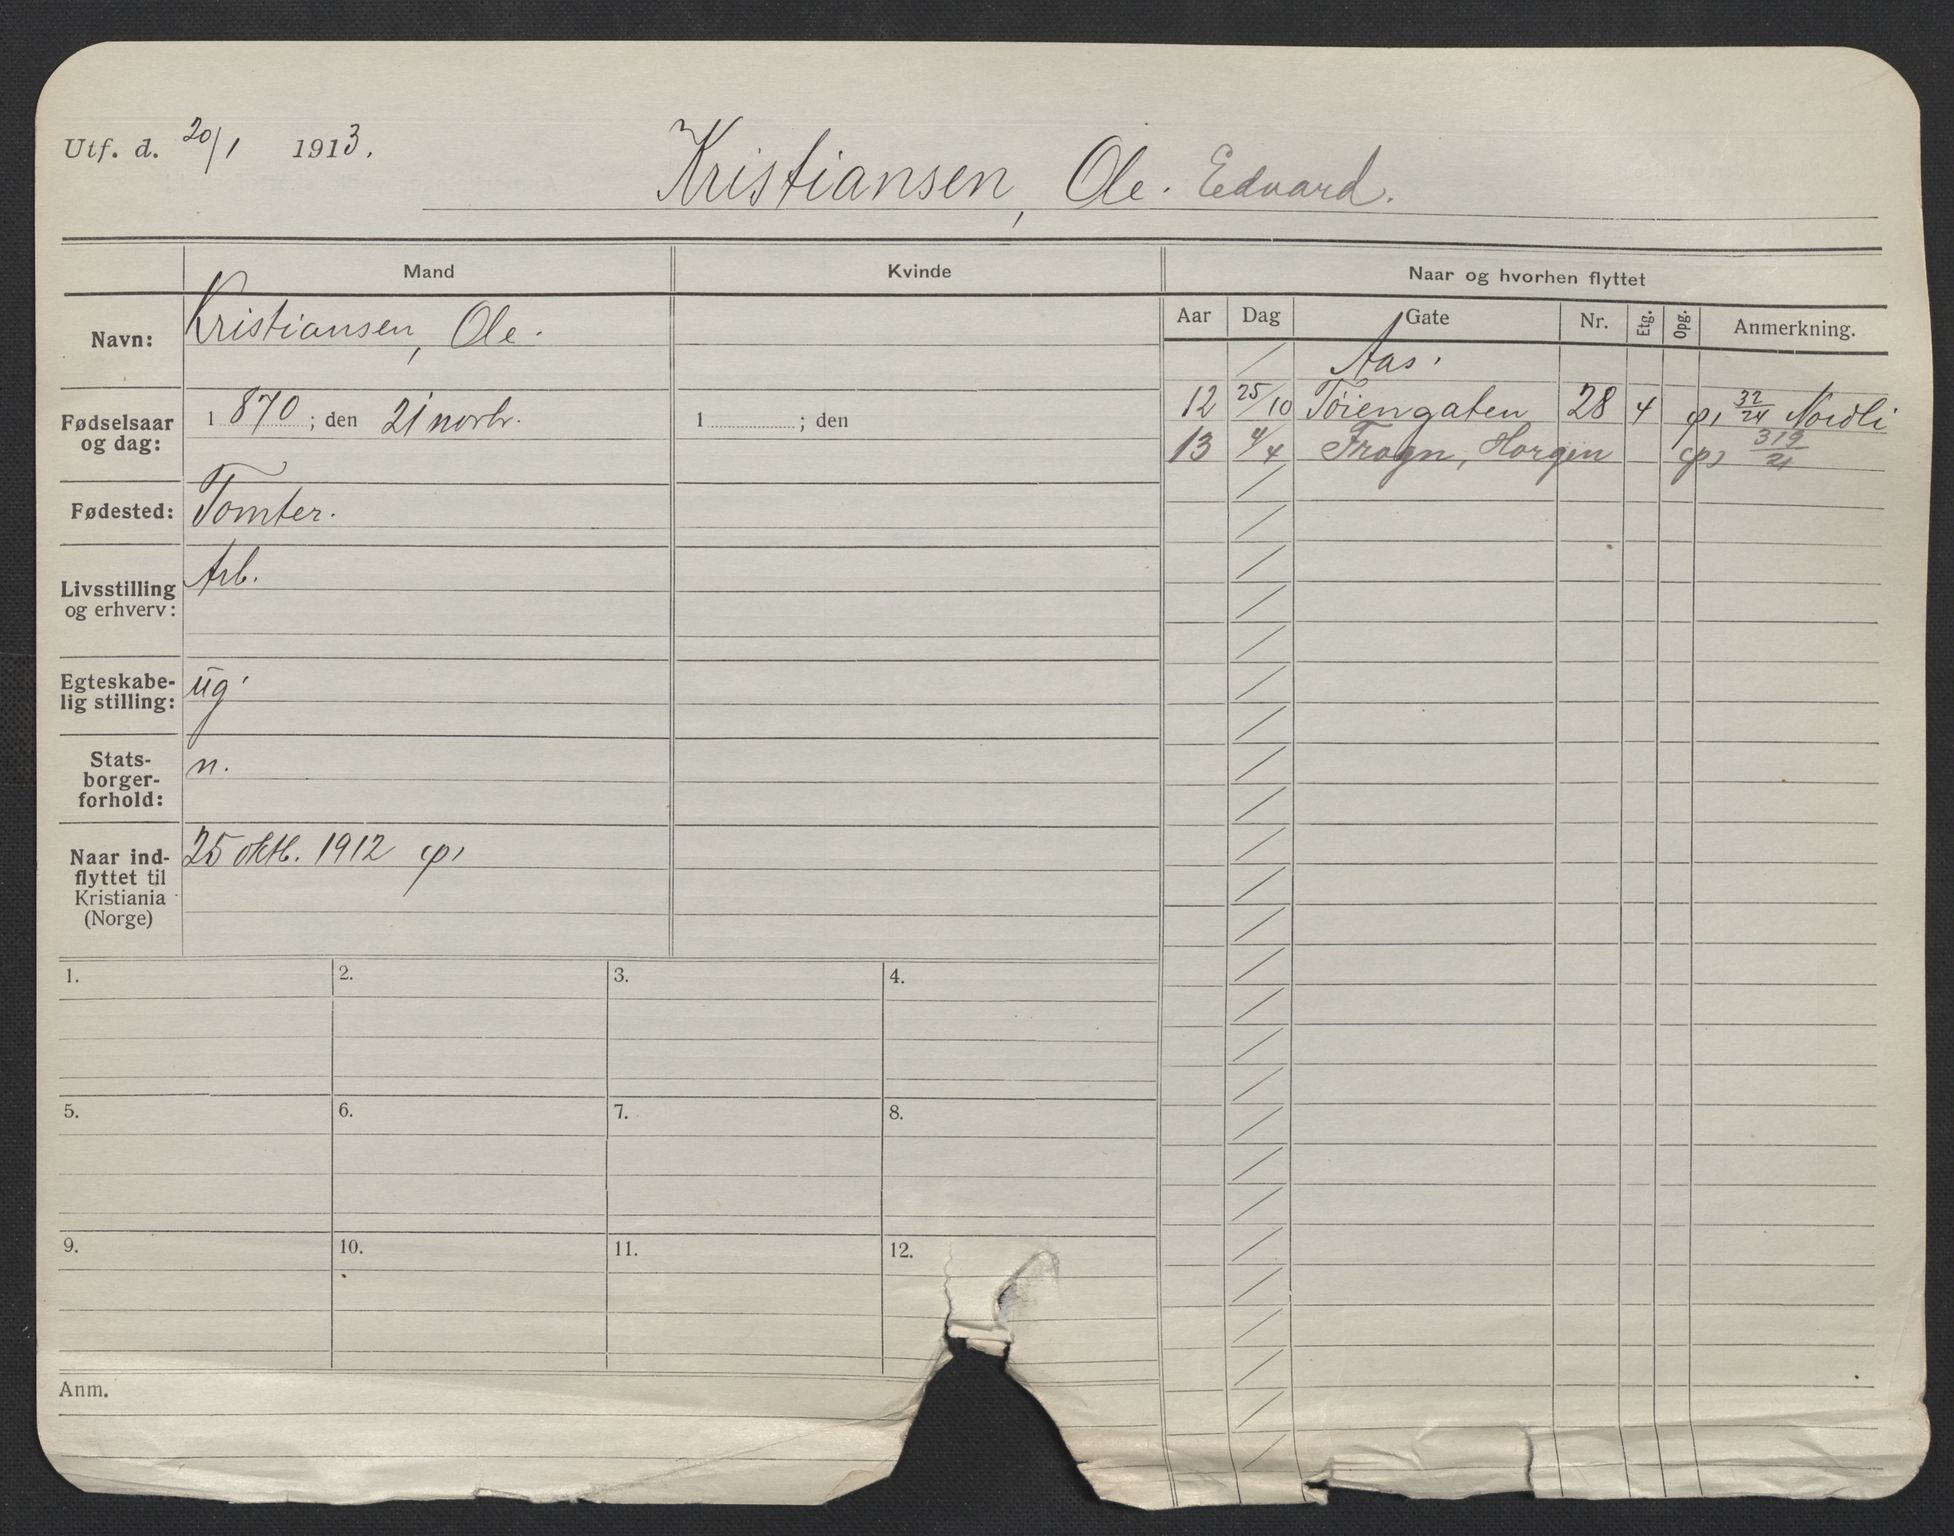 Utf. d. 20/1 1913.
Kristiansen, Ole. Edvard.
Mand Kvinde Naar og hvorhen flyttet
Aar Dag Gate Nr. Etg. Opg. Anmerkning.
Navn: Kristiansen, Ole.
Aas.
12 25/10 Töiengaten 28 4 32/24 Nordli
13 4/4 Frogn, Horgen 319/21
Fødselsaar og dag: 1870; den 21 novbr. 1 ; den
Fødested: Tomter.
Livsstilling og erhverv: Arb.
Egteskabe-
lig stilling: ug.
Stats-
borger-
forhold: n.
Naar ind-
flyttet til
Kristiania
(Norge) 25 oktb. 1912
1. 2. 3. 4.
5. 6. 7. 8.
9. 10. 11. 12.
Anm.